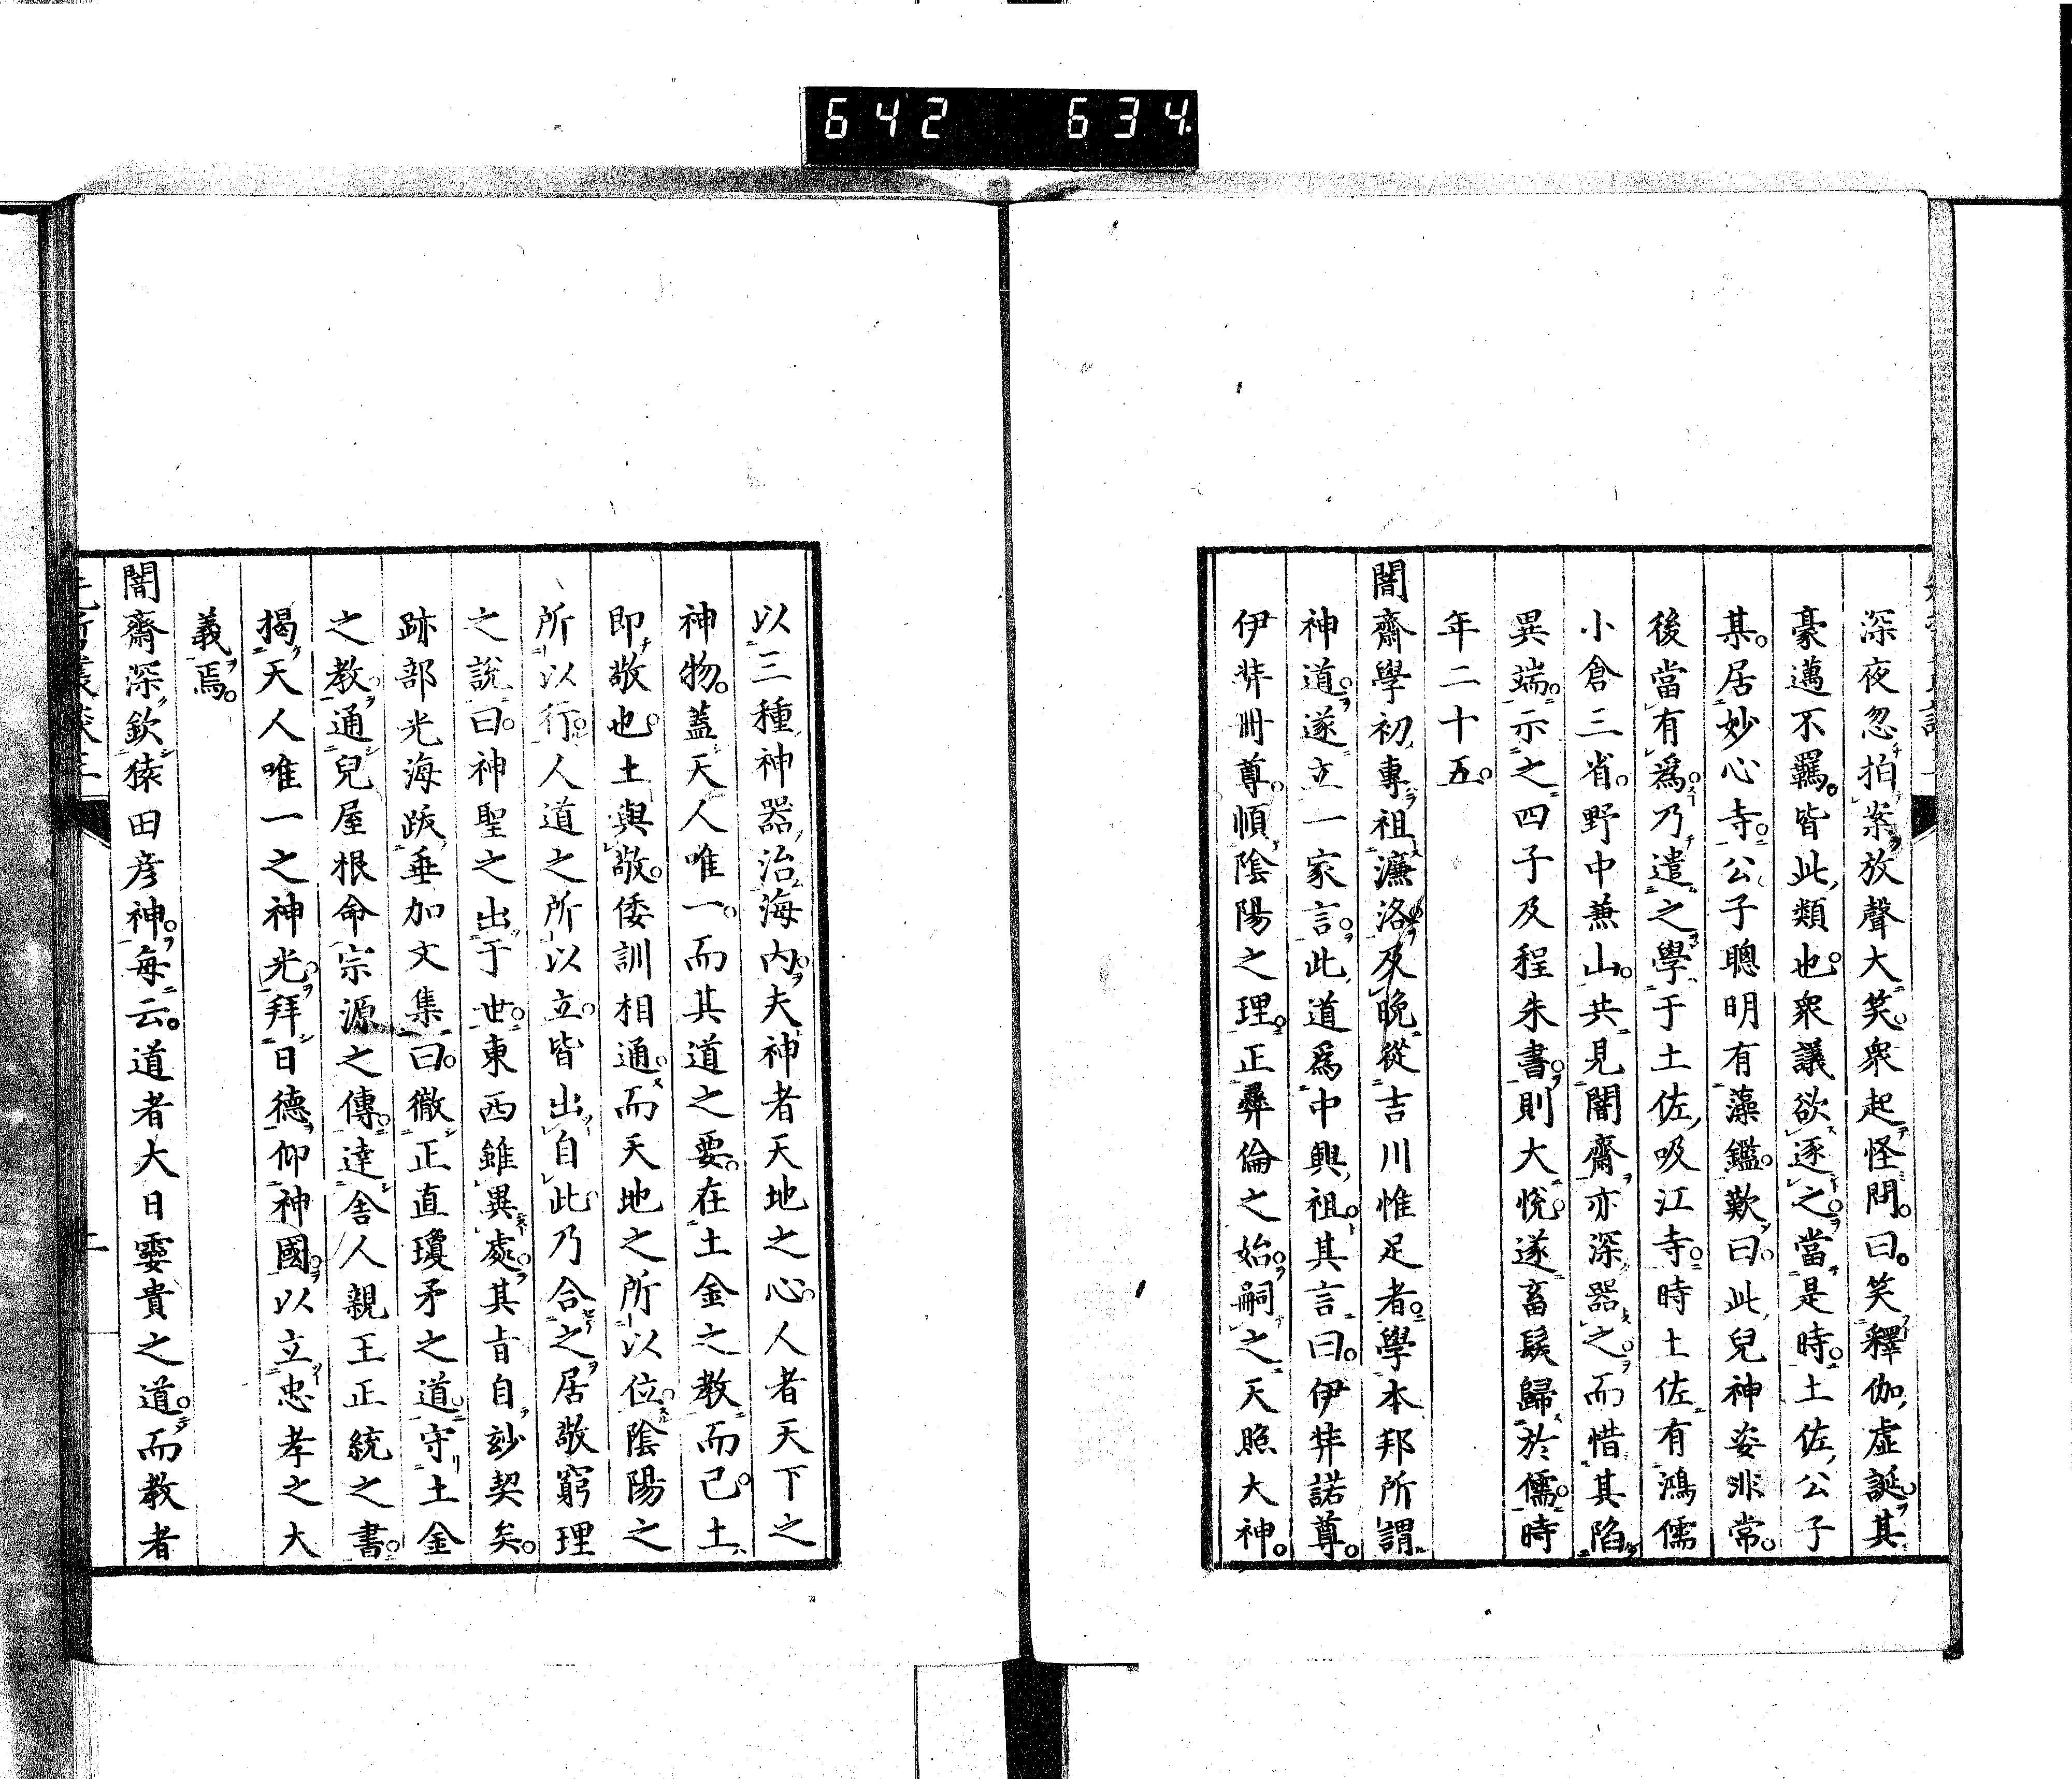 642 634
深夜忽拍案放聲大笑衆起怪問曰笑釋伽虛誕其
豪邁不羈皆此類也衆議欲逐之當是時土佐公子
某居妙心寺公子聰明有藻鑑歎曰此兒神姿非常
後當有爲乃遣之學于土佐吸江寺時土佐有鴻儒
小倉三省野中兼山共見闇齋亦深器之而惜其陷
異端示之四子及程朱書則大悅遂畜髮歸於儒時
年二十五
闇齋學初專祖濂洛及晩從吉川惟足者學本邦所謂
神道遂立一家言此道爲中興祖其言曰伊弉諾尊
伊弉冊尊順陰陽之理正彝倫之始嗣之天照大神
以三種神器治海內夫神者天地之心人者天下之
神物蓋天人唯一而其道之要在土金之教而已土
即敬也土與敬倭訓相通而天地之所以位陰陽之
所以行人道之所以立皆出自此乃合之居敬窮理
之說曰神聖之出于世東西雖異處其旨自玅契矣
跡部光海跋垂加文集曰徹正直瓊矛之道守土金
之教通兒屋根命宗源之傳達舍人親王正統之書
揭天人唯一之神光拜日德仰神國以立忠孝之大
義焉
闇齋深欽猿田彦神每云道者大日孁貴之道而教者